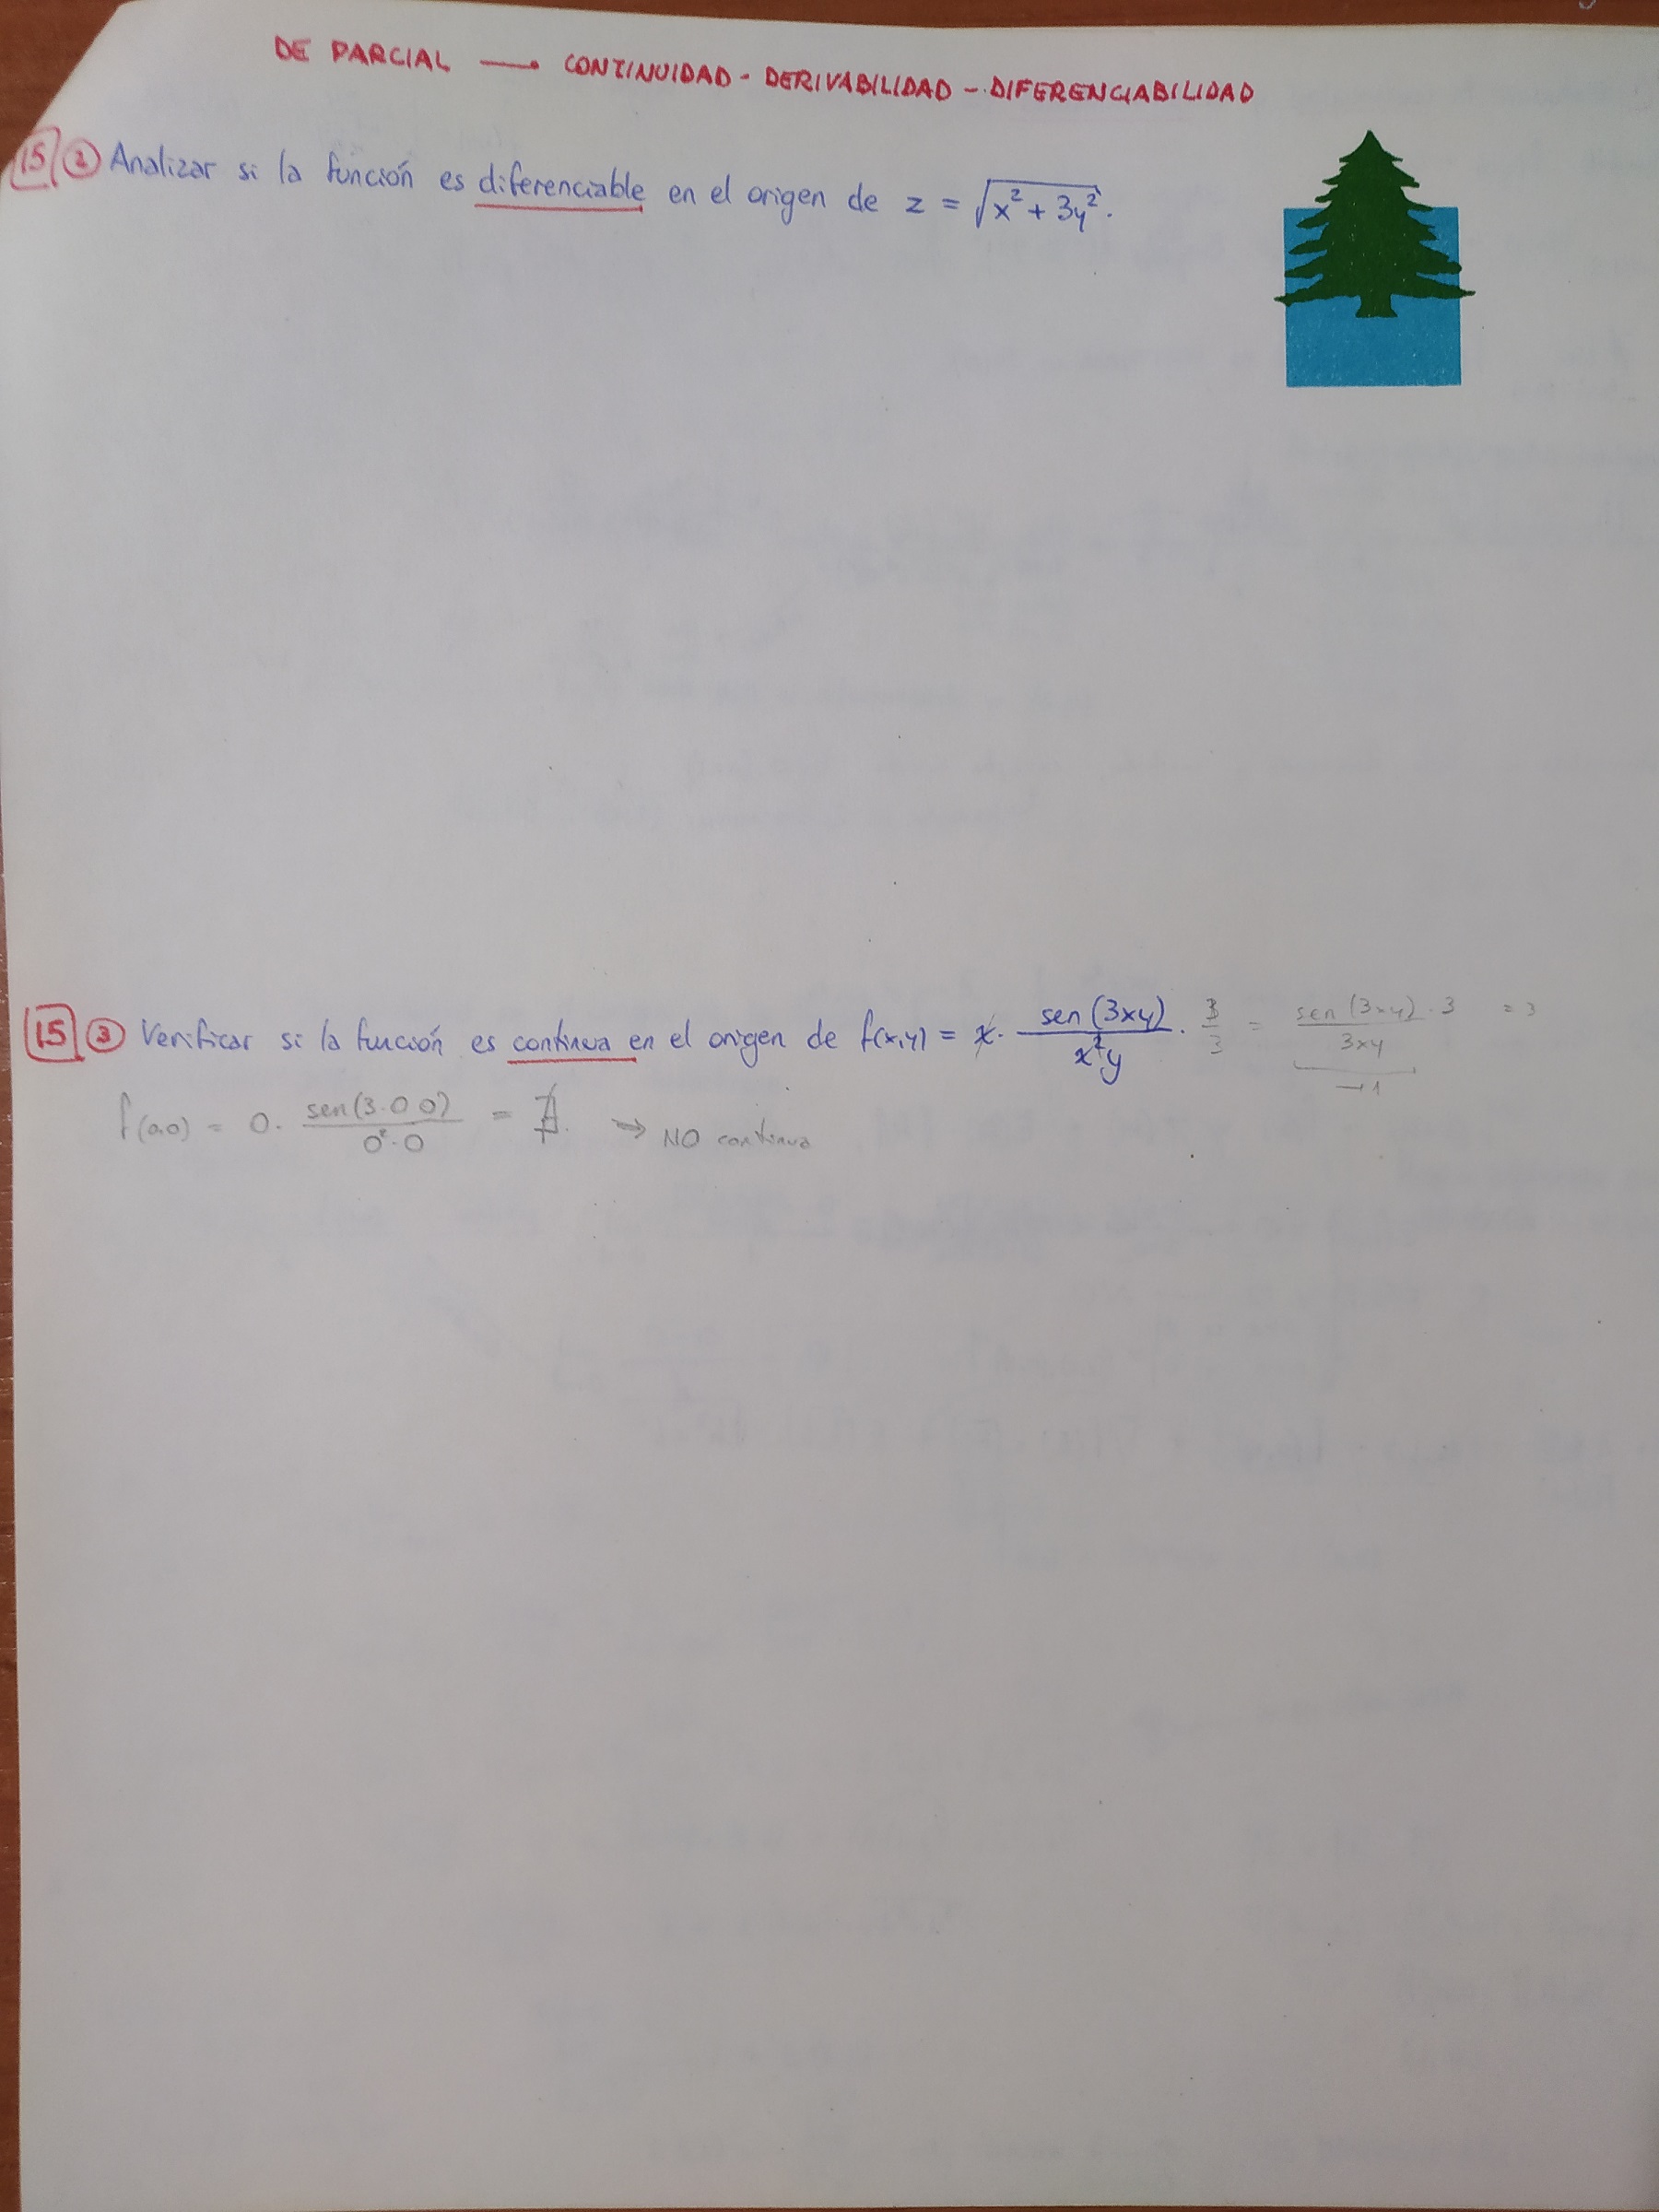 DE PARCIAL → CONTINUIDAD - DERIVABILIDAD - DIFERENCIABILIDAD
15 2 Analizar si la función es diferenciable en el origen de z = √(x² + 3y²).
15 3 Verificar si la función es continua en el origen de f(x,y) = x · sen(3xy)/(x²y) · 3/3 = sen(3xy)/(3xy) · 3 = 3
→1
f(0,0) = 0 · sen(3·0·0)/(0²·0) = ∄. → NO continua